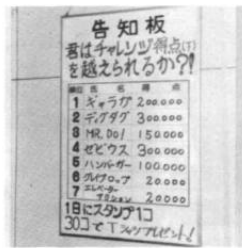 告知板
君はチャレンジ得点(下)
を越えられるか?!
順位 氏名 得点
1 ギャラガ 200.000
2 ディグダグ 300000
3 MR.DO! 150.000
4 ゼビウス 300.000
5 ハンバーガー 100.000
6 クレイプロップ 20000
7 エレベーター
アクション 20000
1日にスタンプ1コ
30コでTシャツプレゼント!